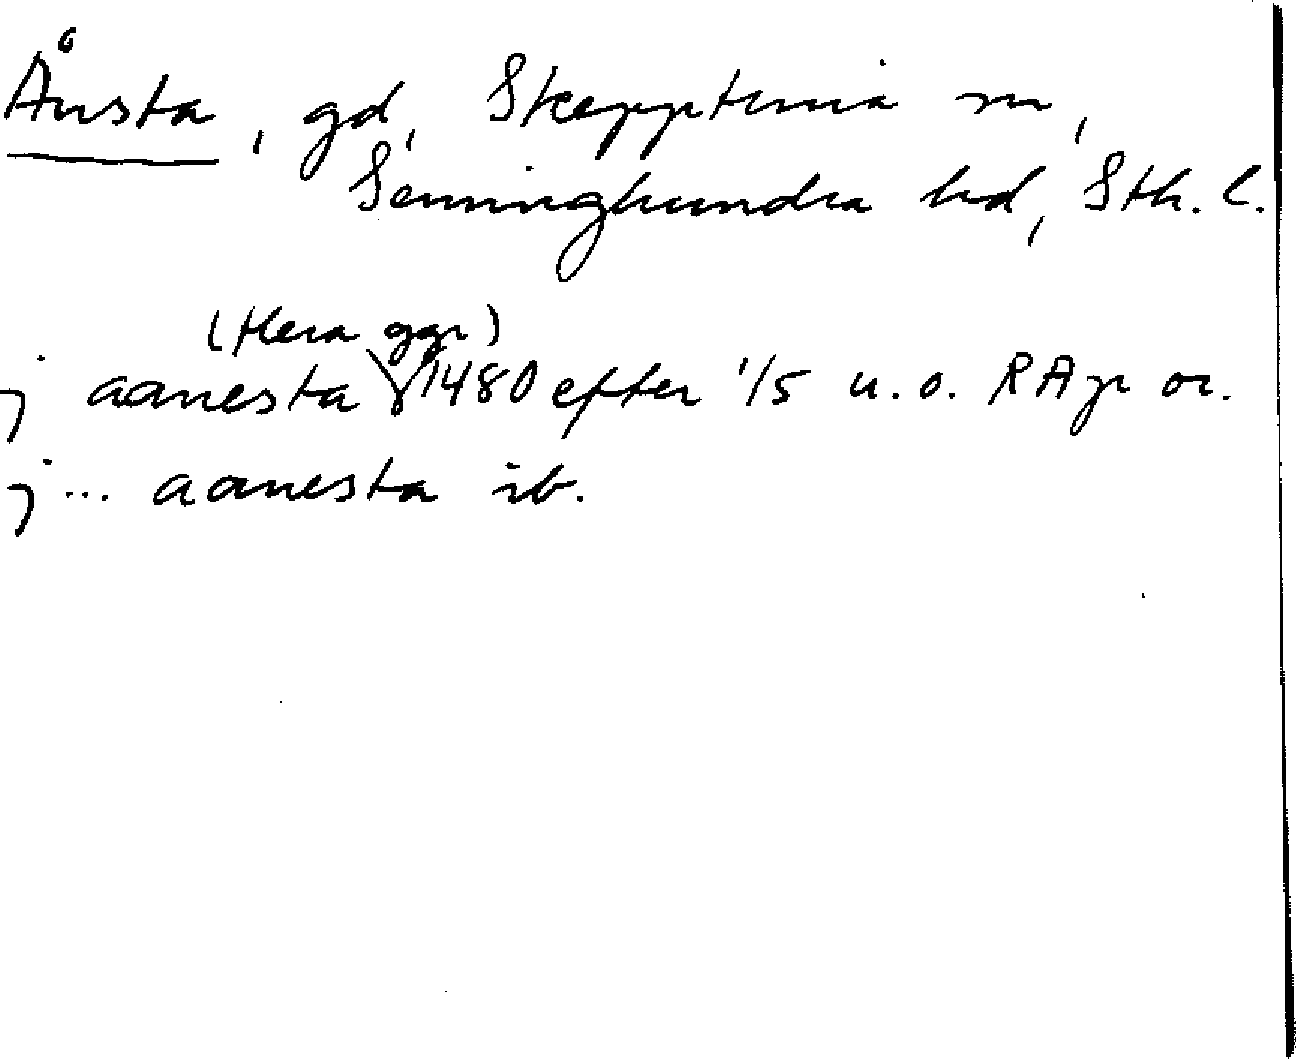 Ånsta, gd, Skepptuna sn,
Seminghundra hd, Sth. l.
(flera ggr)
j aanesta 1480 efter 1/5 u.o. RAp or.
j ... aanesta ib.